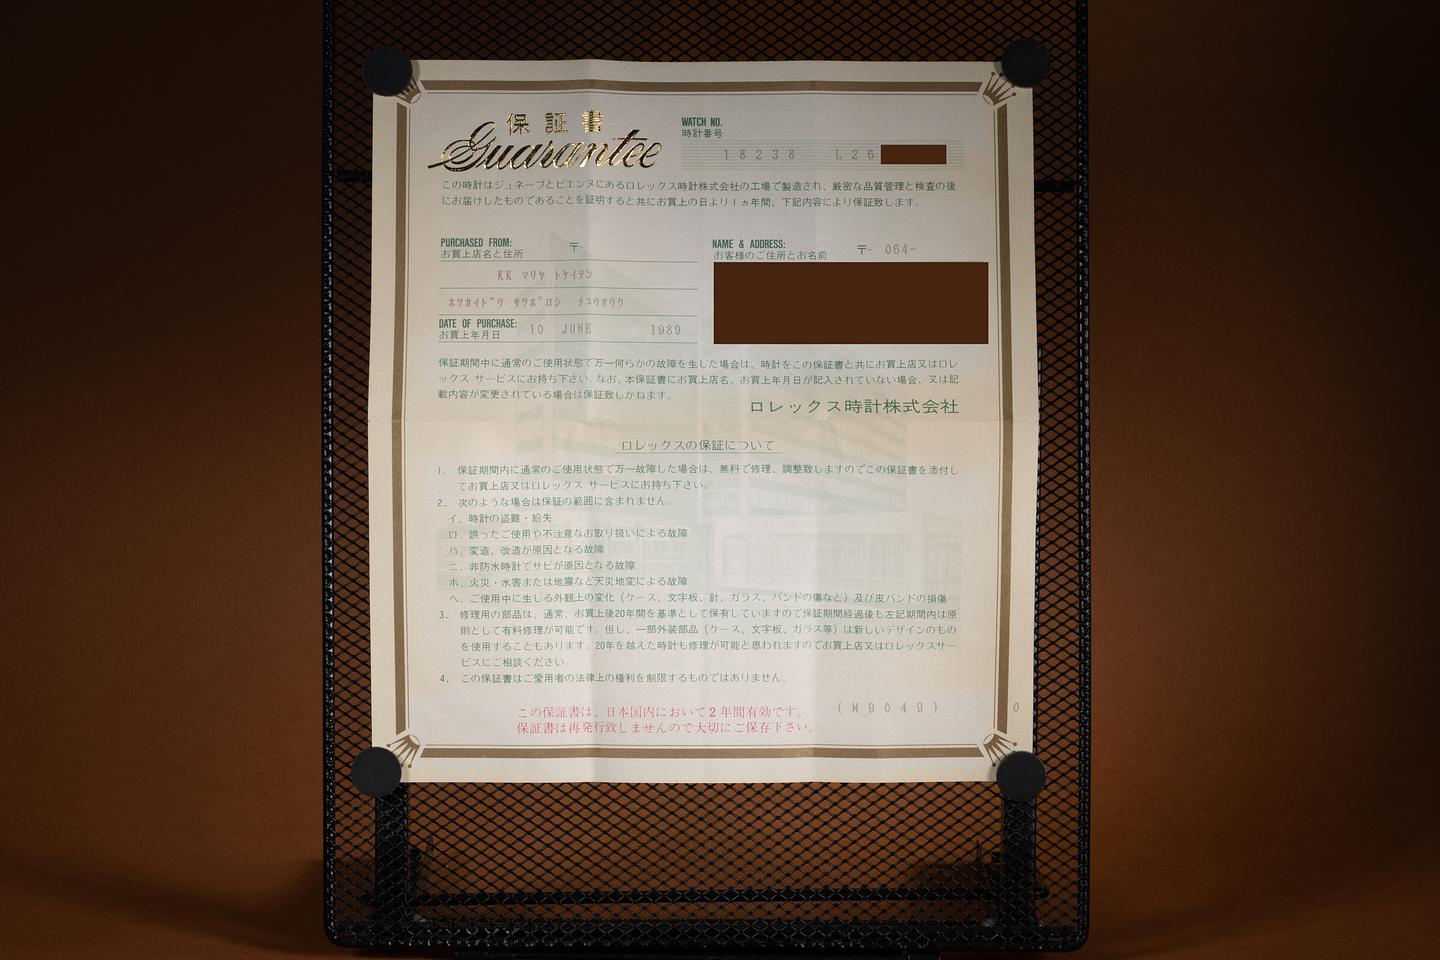 保証書
Guarantee
WATCH NO.
時計番号
18238 L26
この時計はジュネーブとビエンヌにあるロレックス時計株式会社の工場で製造され、厳密な品質管理と検査の後
にお届けしたものであることを証明すると共にお買上の日より1ヵ年間、下記内容により保証致します。
PURCHASED FROM:
お買上店名と住所
〒-
KK マリヤ トケイテン
ホツカイド゛ウ サツポ゜ロシ チユウオウク
DATE OF PURCHASE:
お買上年月日
10 JUNE 1989
NAME & ADDRESS:
お客様のご住所とお名前
〒- 064-
保証期間中に通常のご使用状態で万一何らかの故障を生じた場合は、時計をこの保証書と共にお買上店又はロレ
ックス サービスにお持ち下さい。なお、本保証書にお買上店名、お買上年月日が記入されていない場合、又は記
載内容が変更されている場合は保証致しかねます。
ロレックス時計株式会社
ロレックスの保証について
1. 保証期間内に通常のご使用状態で万一故障した場合は、無料で修理、調整致しますのでこの保証書を添付し
てお買上店又はロレックス サービスにお持ち下さい。
2. 次のような場合は保証の範囲に含まれません。
イ. 時計の盗難・紛失
ロ. 誤ったご使用や不注意なお取り扱いによる故障
ハ. 変造、改造が原因となる故障
ニ. 非防水時計でサビが原因となる故障
ホ. 火災・水害または地震など天災地変による故障
ヘ. ご使用中に生じる外観上の変化（ケース、文字板、針、ガラス、バンドの傷など）及び皮バンドの損傷
3. 修理用の部品は、通常、お買上後20年間を基準として保有していますので保証期間経過後も左記期間内は原
則として有料修理が可能です。但し、一部外装部品（ケース、文字板、ガラス等）は新しいデザインのもの
を使用することもあります。20年を越えた時計も修理が可能と思われますのでお買上店又はロレックスサー
ビスにご相談ください。
4. この保証書はご愛用者の法律上の権利を制限するものではありません。
この保証書は、日本国内において2年間有効です。
保証書は再発行致しませんので大切にご保存下さい。
(M9049) 0